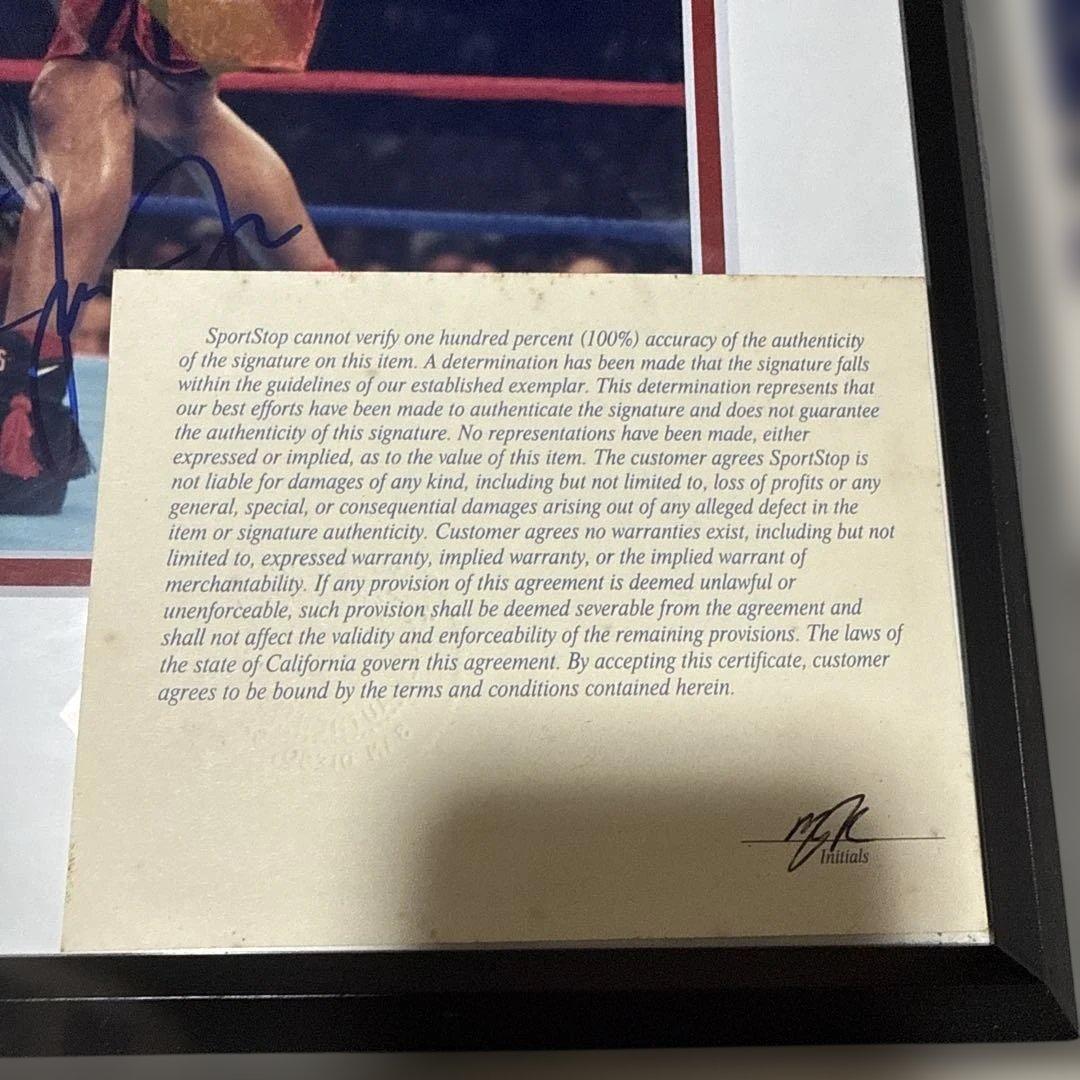 SportStop cannot verify one hundred percent (100%) accuracy of the authenticity
of the signature on this item. A determination has been made that the signature falls
within the guidelines of our established exemplar. This determination represents that
our best efforts have been made to authenticate the signature and does not guarantee
the authenticity of this signature. No representations have been made, either
expressed or implied, as to the value of this item. The customer agrees SportStop is
not liable for damages of any kind, including but not limited to, loss of profits or any
general, special, or consequential damages arising out of any alleged defect in the
item or signature authenticity. Customer agrees no warranties exist, including but not
limited to, expressed warranty, implied warranty, or the implied warrant of
merchantability. If any provision of this agreement is deemed unlawful or
unenforceable, such provision shall be deemed severable from the agreement and
shall not affect the validity and enforceability of the remaining provisions. The laws of
the state of California govern this agreement. By accepting this certificate, customer
agrees to be bound by the terms and conditions contained herein.
Initials